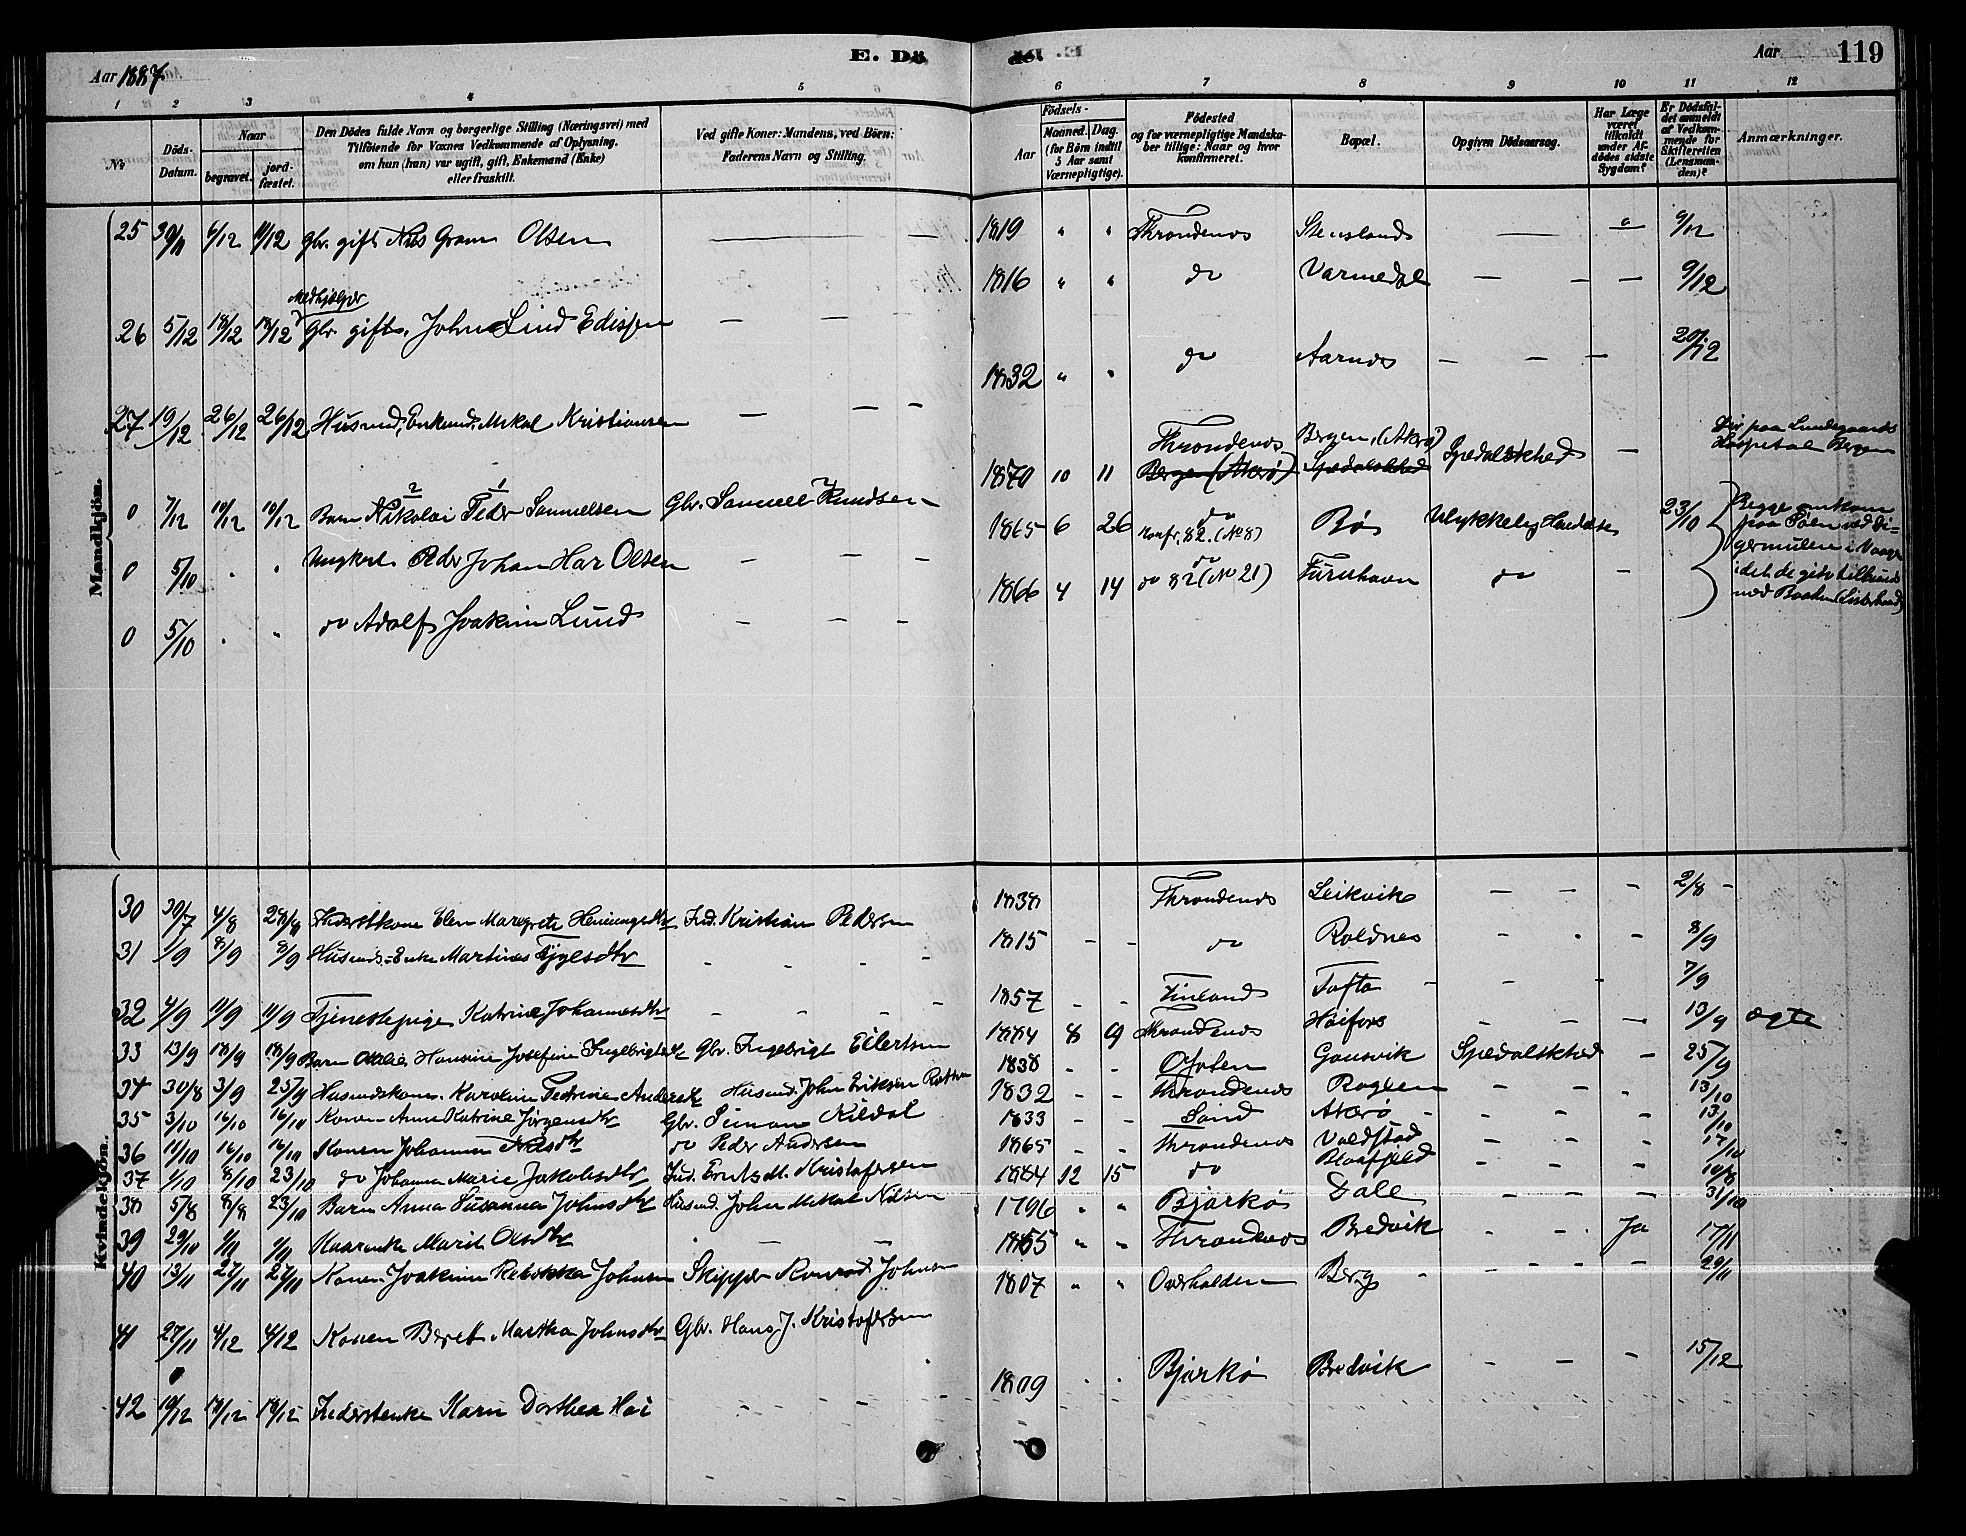 Aar 1887.
E. Dö
dö. E.
Aar
119
1 2 3 4 5 6 7 8 9 10 11 12
№
Döds-Datum.
Naar
begravet.
jord-fæstet.
Den Dödes fulde Navn og borgerlige Stilling (Næringsvei) med
Tilföiende for Voxnes Vedkommende af Oplysning,
om hun (han) var ugift, gift, Enkemand (Enke)
eller fraskilt.
Ved gifte Koner: Mandens, ved Börn:
Faderens Navn og Stilling.
Födsels-
Aar
Maaned. Dag.
(for Börn indtil
5 Aar samt
Værnepligtige).
Födested
og for værnepligtige Mandska-
ber tillige: Naar og hvor
konfirmeret.
Bopæl.
Opgiven Dödsaarsag.
Har Læge
været
tilkaldt
under Af-
dödes sidste
Sygdom?
Er Dödsfal-
det anmeldt
af Vedkom-
mende for
Skifteretten
(Lensman-
den)?
Anmærkninger.
Mandkjön.
25 30/11 6/12 11/12 Gbr. gift Nils Gram Olsen — — 1819 " " Throndenes Stensland — — 9/12
Medhjælper
26 5/12 18/12 18/12 Gbr. gift. John Lind Edissen — — 1816 " " do Varmedal — — — 9/12
27 19/12 26/12 26/12 Husmd, Enkemd, Mekal Kristiansen — — — 1832 " " do Aarnes — — — 20/12
0 7/12 10/12 10/12 Barn Nikolai Peder Samuelsen Gbr. Samuel Knudsen 1870 10 11 Throndenes Bergen (Akerø) Bergen, (Akerø) Spedalskhed Spedalskhed — Dør paa Lungegaards
Hospital Bergen
0 5/10 " " Ungkarl Peder Johan Har Olsen — — — 1865 6 26 do Konfr. 82. (No 8) Bø Ulykkelig Hændelse 23/10 Begge omkom
paa Søen ved Di-
germulen i Vaagen
idet de
med Baaden
0 5/10 " " do Adolf Joakim Lund — — — 1866 4 14 do do 82 (No 21) Furuhavn do —
Kvindekjön.
30 30/7 4/8 28/8 Inderstkone Elen Maregrete Henningsdtr Ind. Kristian Pedersen 1838 Throndenes Leikvik — — — 2/8 -
31 1/9 8/9 8/9 Husmds-Enke Martine - - - - 1815 - - do Roldnes - - - 8/9
32 4/9 11/9 11/9 Tjenestepige Katrine Johannesdtr - - - - 1857 - - Finland Tofta - - - 7/9
33 13/9 18/9 18/9 Barn Hansine Josefine Ingebrigtsdtr Gbr. Ingebrigt Eilertsen 1884 8 9 Throndenes Høifors - - — 13/9 ægte
34 30/8 3/9 25/9 Husmdskone. Karoline Petrine Andersdtr Husmd. John Eriksen 1838 - - Ofoten Gausvik Spedalskhed - 25/9
35 3/10 16/10 16/10 Konen Anne Katrine Jørgensdtr Gbr. Simon Kildal 1832 - - Throndenes Rogden - - - 13/10
36 11/10 16/10 16/10 Konen Johanna Nilsdtr do Peder Andersen 1833 - - Sand Akerø - - - 13/10
37 1/10 8/10 23/10 do Johanna Marie Jakobsdtr Ind. Kristofersen 1865 - - Throndenes Voldstad - - - 17/10
38 5/8 8/8 23/10 Barn Anna Susanna Johnsdtr Husmd. John Mekal Nilsen 1884 12 15 do Blaafjeld - - - 10/8
39 29/10 1/11 1/11 Kaarenke Marit Olsdtr - - - 1796 " " Bjarkø Dale - - - 31/10
40 13/11 27/11 27/11 Konen Joakime Rebekka Johnsen Skipper Konrad Johnsen 1855 " " Throndenes Bredvik - - Ja 17/11
41 27/11 4/12 4/12 Konen Beret Martha Johnsdtr Gbr. Hans J. Kristofersen 1807 " " Overhalden Berg - - - - 29/11
42 10/12 18/12 18/12 Inderstenke Karn Dorthea Hoi - - - - 1809 " " Bjarkø Bredvik - - - 15/12